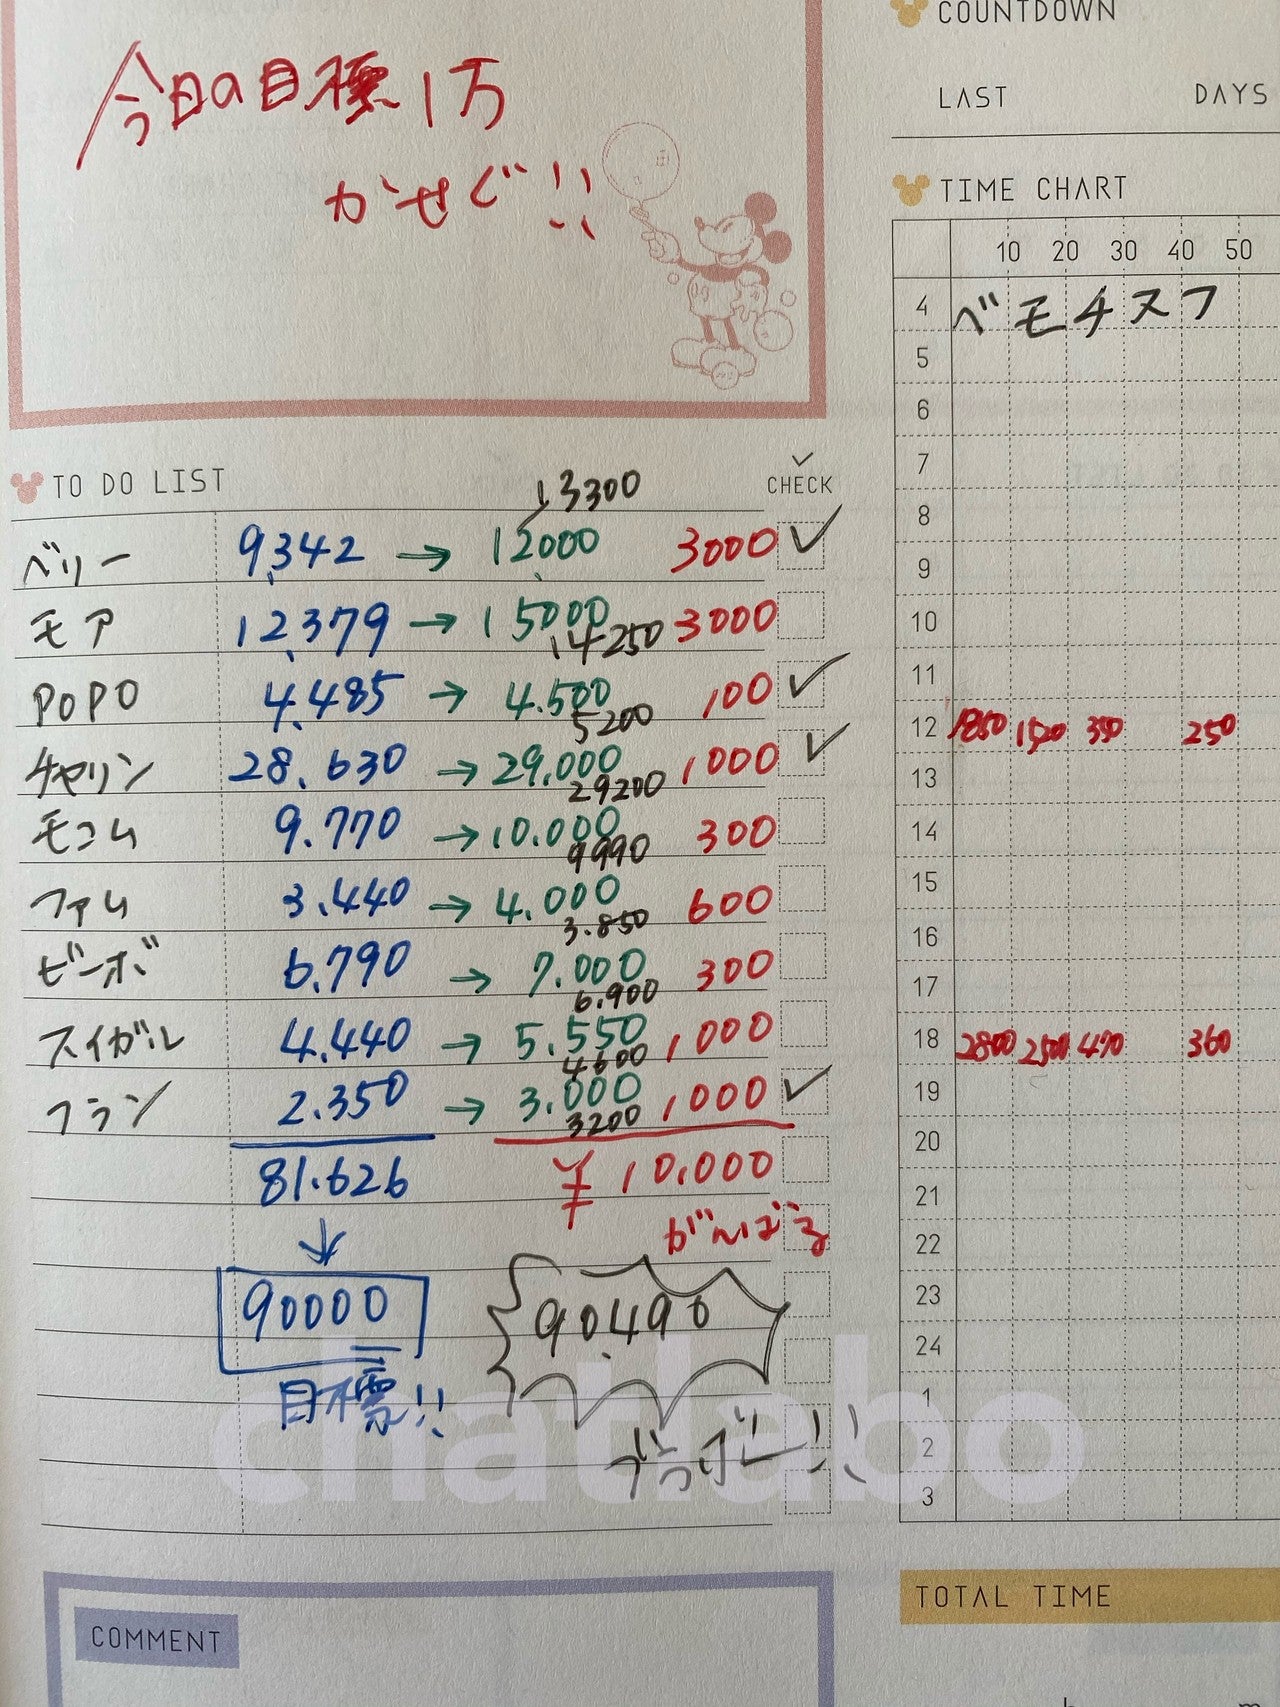 今日の目標1万
かせぐ!!
COUNTDOWN
LAST DAYS
TIME CHART
10 20 30 40 50
4 ベ モ チ ス フ
5
6
7
8
9
10
11
12 1850 1520 350 250
13
14
15
16
17
18 2800 2500 470 360
19
20
21
22
23
24
1
2
3
TO DO LIST CHECK
13300
ベリー 9,342 → 12000 3000 ✓
モア 12,379 → 15000 3000
14250
POPO 4.485 → 4.500 100 ✓
5200
チャリン 28.630 → 29.000 1000 ✓
29200
モコム 9.770 → 10.000 300
9990
ファム 3.440 → 4.000 600
3.850
ビーボ 6.790 → 7.000 300
6.900
スイガル 4.440 → 5.550 1000
4600
フラン 2.350 → 3.000 1000 ✓
3200
81.626 ¥10,000
↓ がんばる
90000 90.490
目標!!
ブラボー!!
chatlabo
COMMENT
TOTAL TIME